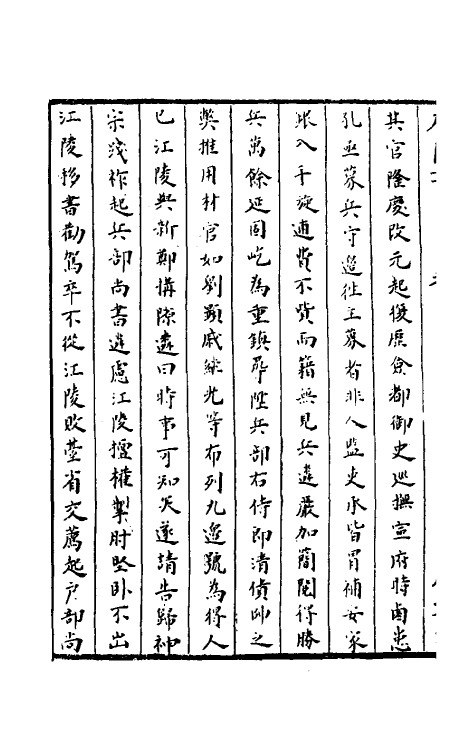 其官隆慶改元起復歷僉都御史巡撫宣府時鹵患
孔亟募兵守邉徃主募者非人監吏水皆冒補安家
賬入手旋逋費不貲而籍無見兵遴嚴加簡閱得勝
兵萬餘延固屹為重鎮尋陞兵部右侍郎清債帥之
獘推用材官如劉顯戚継光等布列九邉號為得人
已江陵與新鄭搆隙遴曰時事可知矣遂請告歸神
宗踐祚起兵部尚書遴慮江陵擅權掣肘堅卧不出
江陵移書勸駕卒不從江陵敗臺省交薦起戸部尚